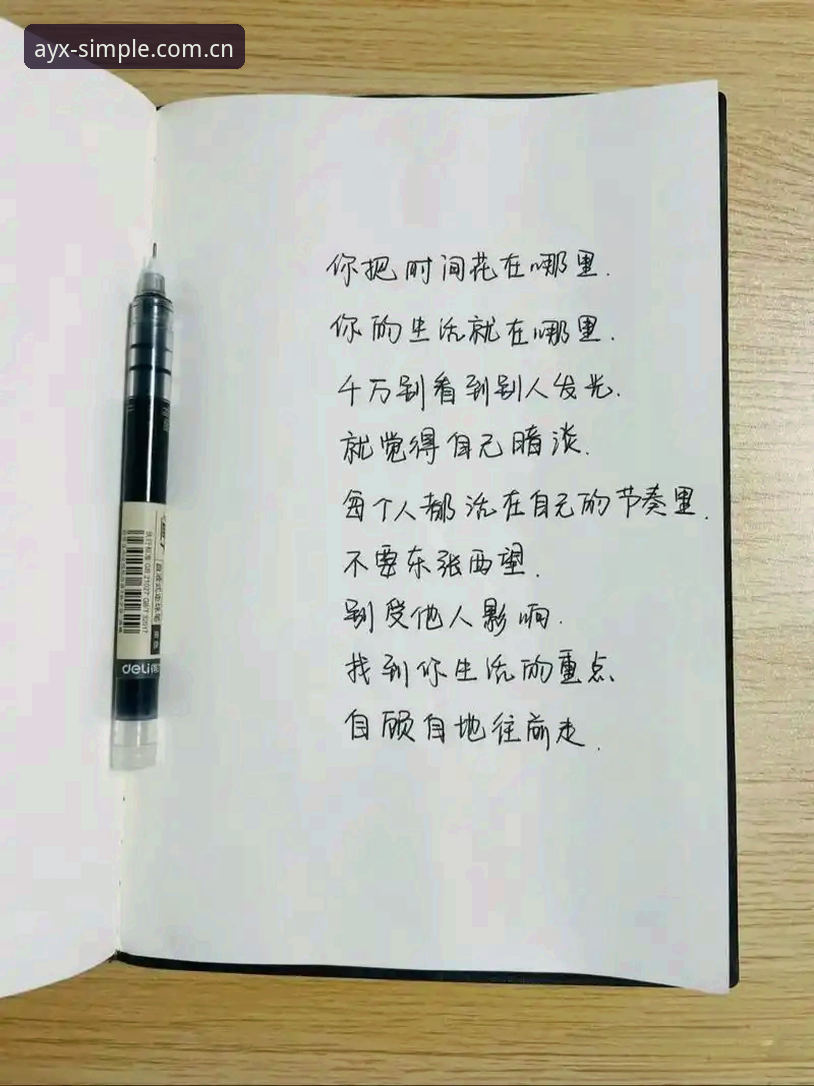 ayx-simple.com.cn
你把时间花在哪里.
你的生活就在哪里.
千万别看到别人发光.
就觉得自己暗淡.
每个人都活在自己的节奏里.
不要东张西望.
别受他人影响.
找到你生活的重点.
自顾自地往前走.
直液式走珠笔
执行标准:GB 21027 QB/T
deli